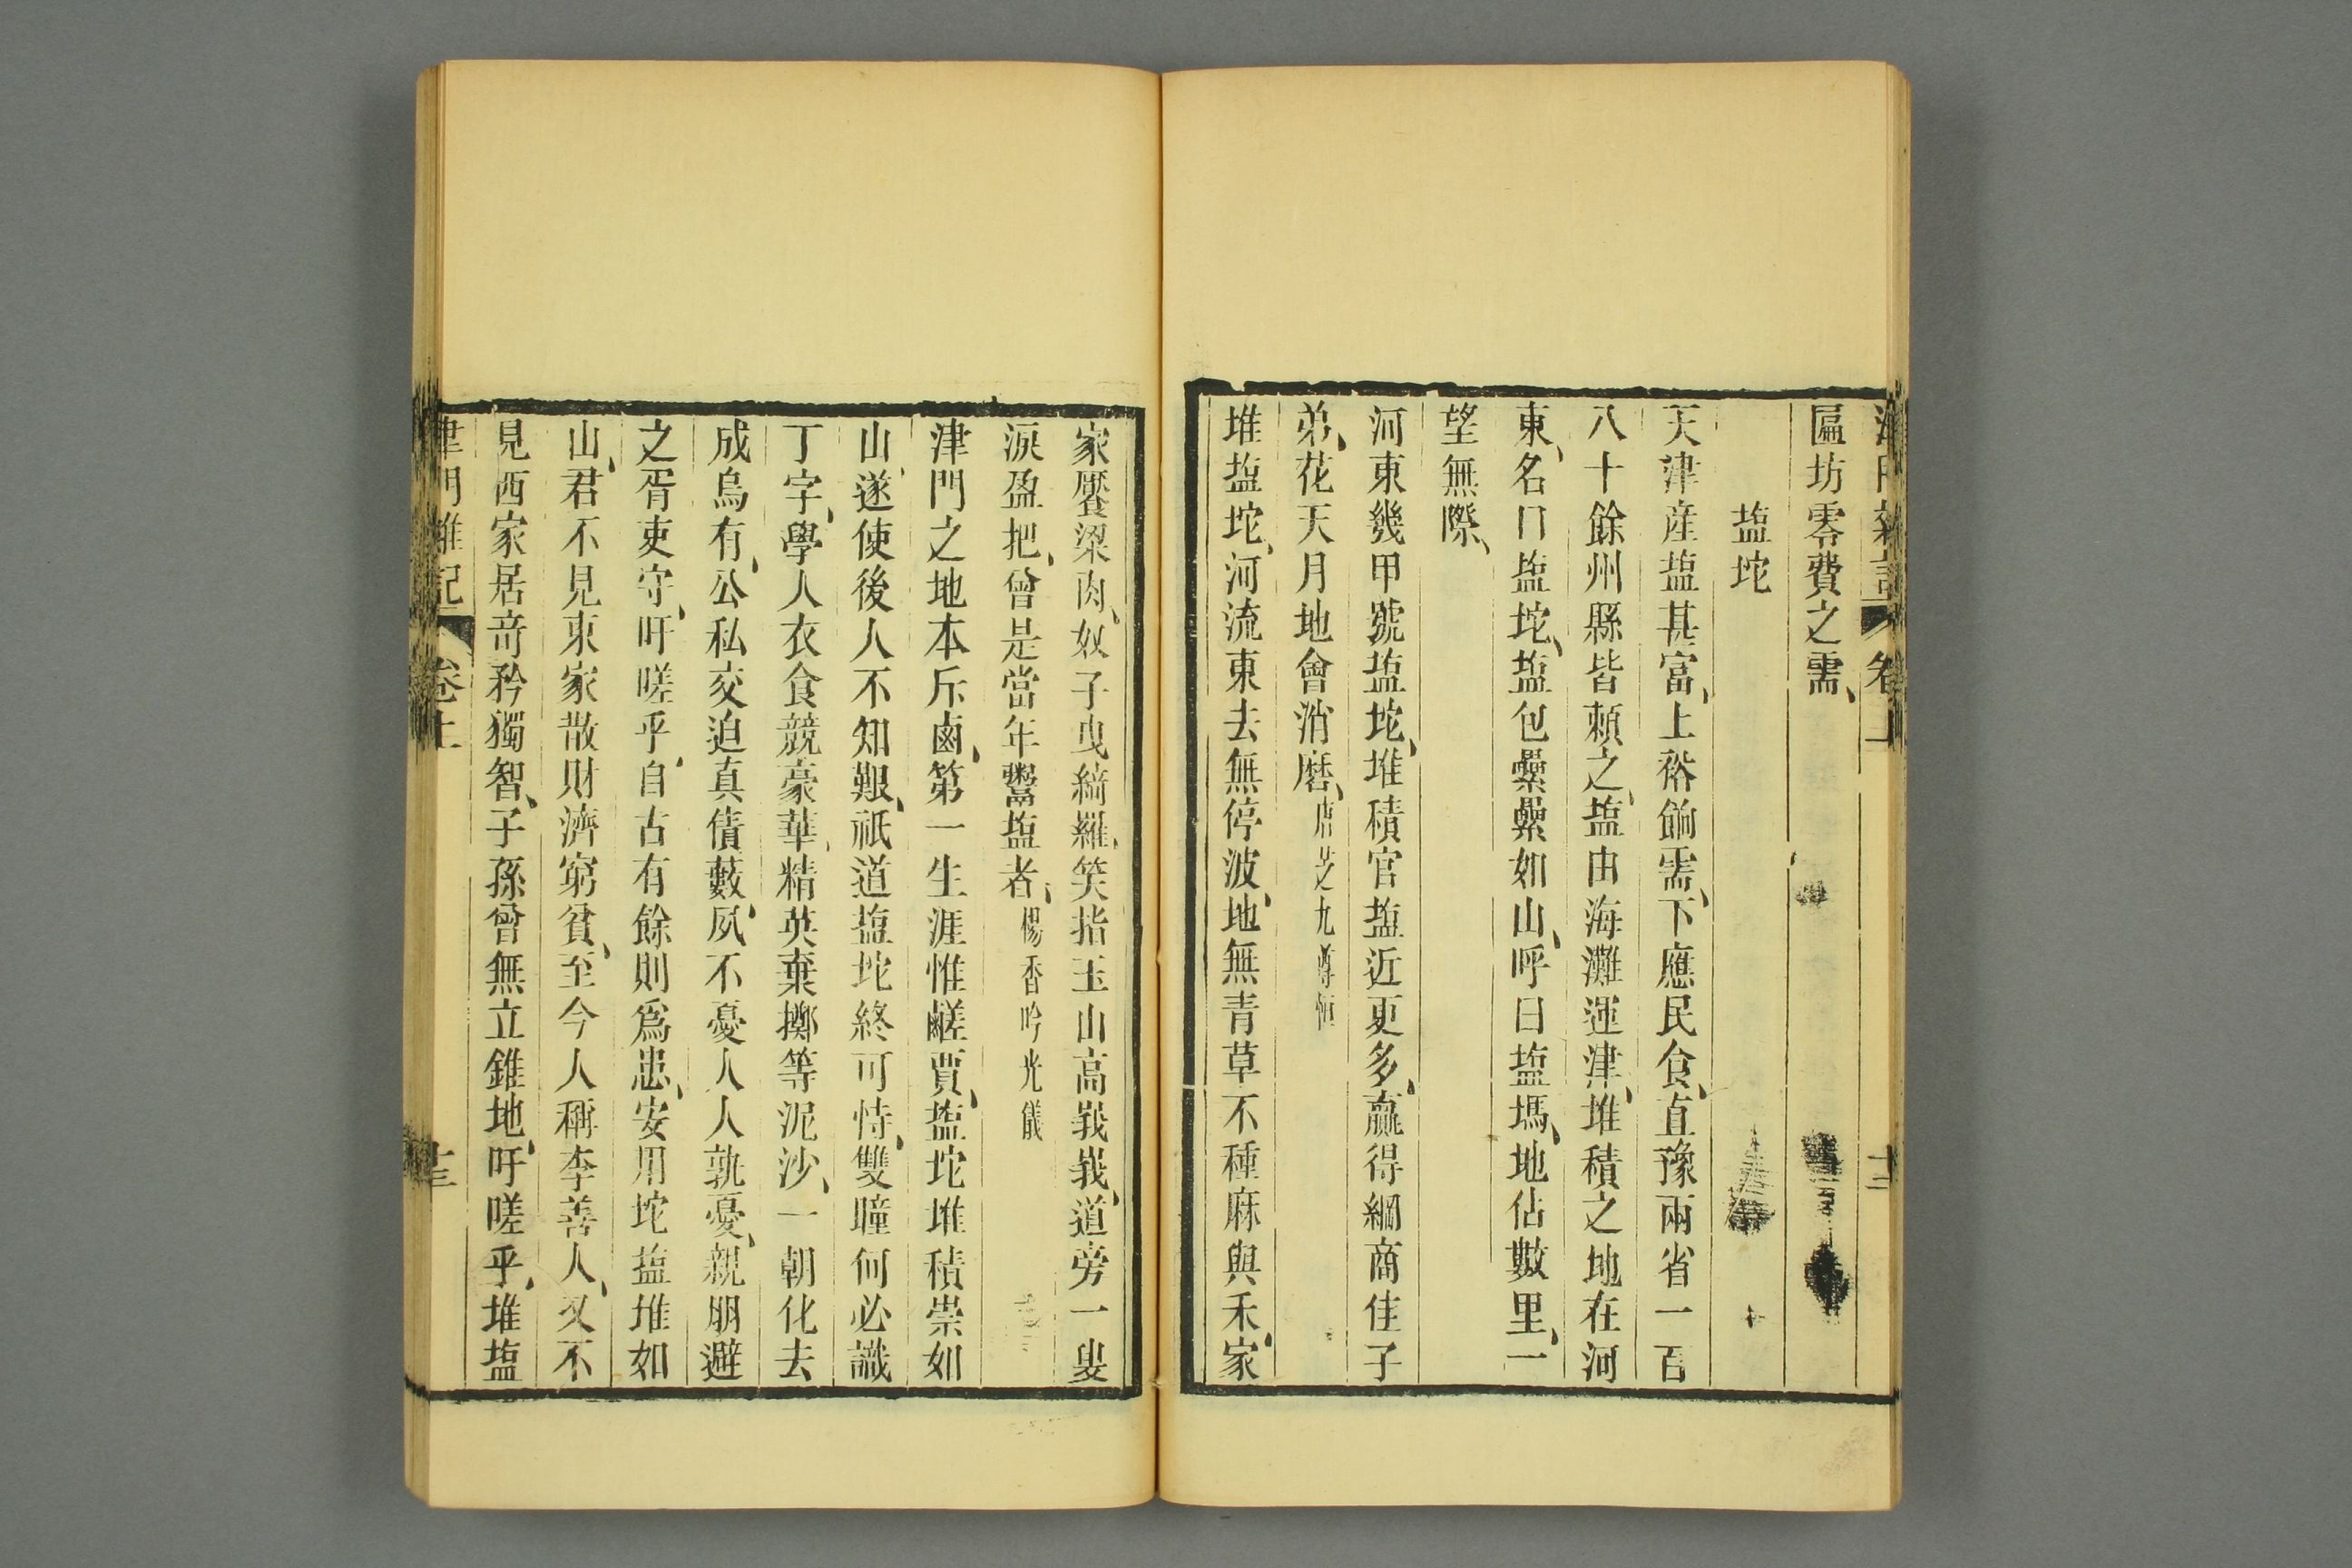 津門雜記 卷上 十二
匾坊零費之需、
塩坨
天津産塩甚富、上裕餉需、下應民食、直豫兩省一百
八十餘州縣皆頼之、塩由海灘運津、堆積之地在河
東、名曰塩坨、塩包纍纍如山、呼曰塩碼、地佔數里、一
望無際、
河東幾甲號塩坨、堆積官塩近更多、贏得綱商佳子
弟、花天月地會消磨、唐芝九尊恒
堆塩坨、河流東去無停波、地無青草不種麻與禾、家
家饜粱肉、奴子曳綺羅、笑指玉山高峩峩、道旁一叟
淚盈把、曾是當年鬻塩者、楊香吟光儀
津門之地本斥鹵、第一生涯惟鹺賈、塩坨堆積崇如
山、遂使後人不知艱、祇道塩坨終可恃、雙瞳何必識
丁字、學人衣食競豪華、精英棄擲等泥沙、一朝化去
成烏有、公私交迫真債藪、夙不憂人人孰憂、親朋避
之胥吏守、吁嗟乎、自古有餘則爲患、安用坨塩堆如
山、君不見東家散財濟窮貧、至今人稱李善人、又不
見西家居奇矜獨智、子孫曾無立錐地、吁嗟乎、堆塩
津門雜記 卷上 十三